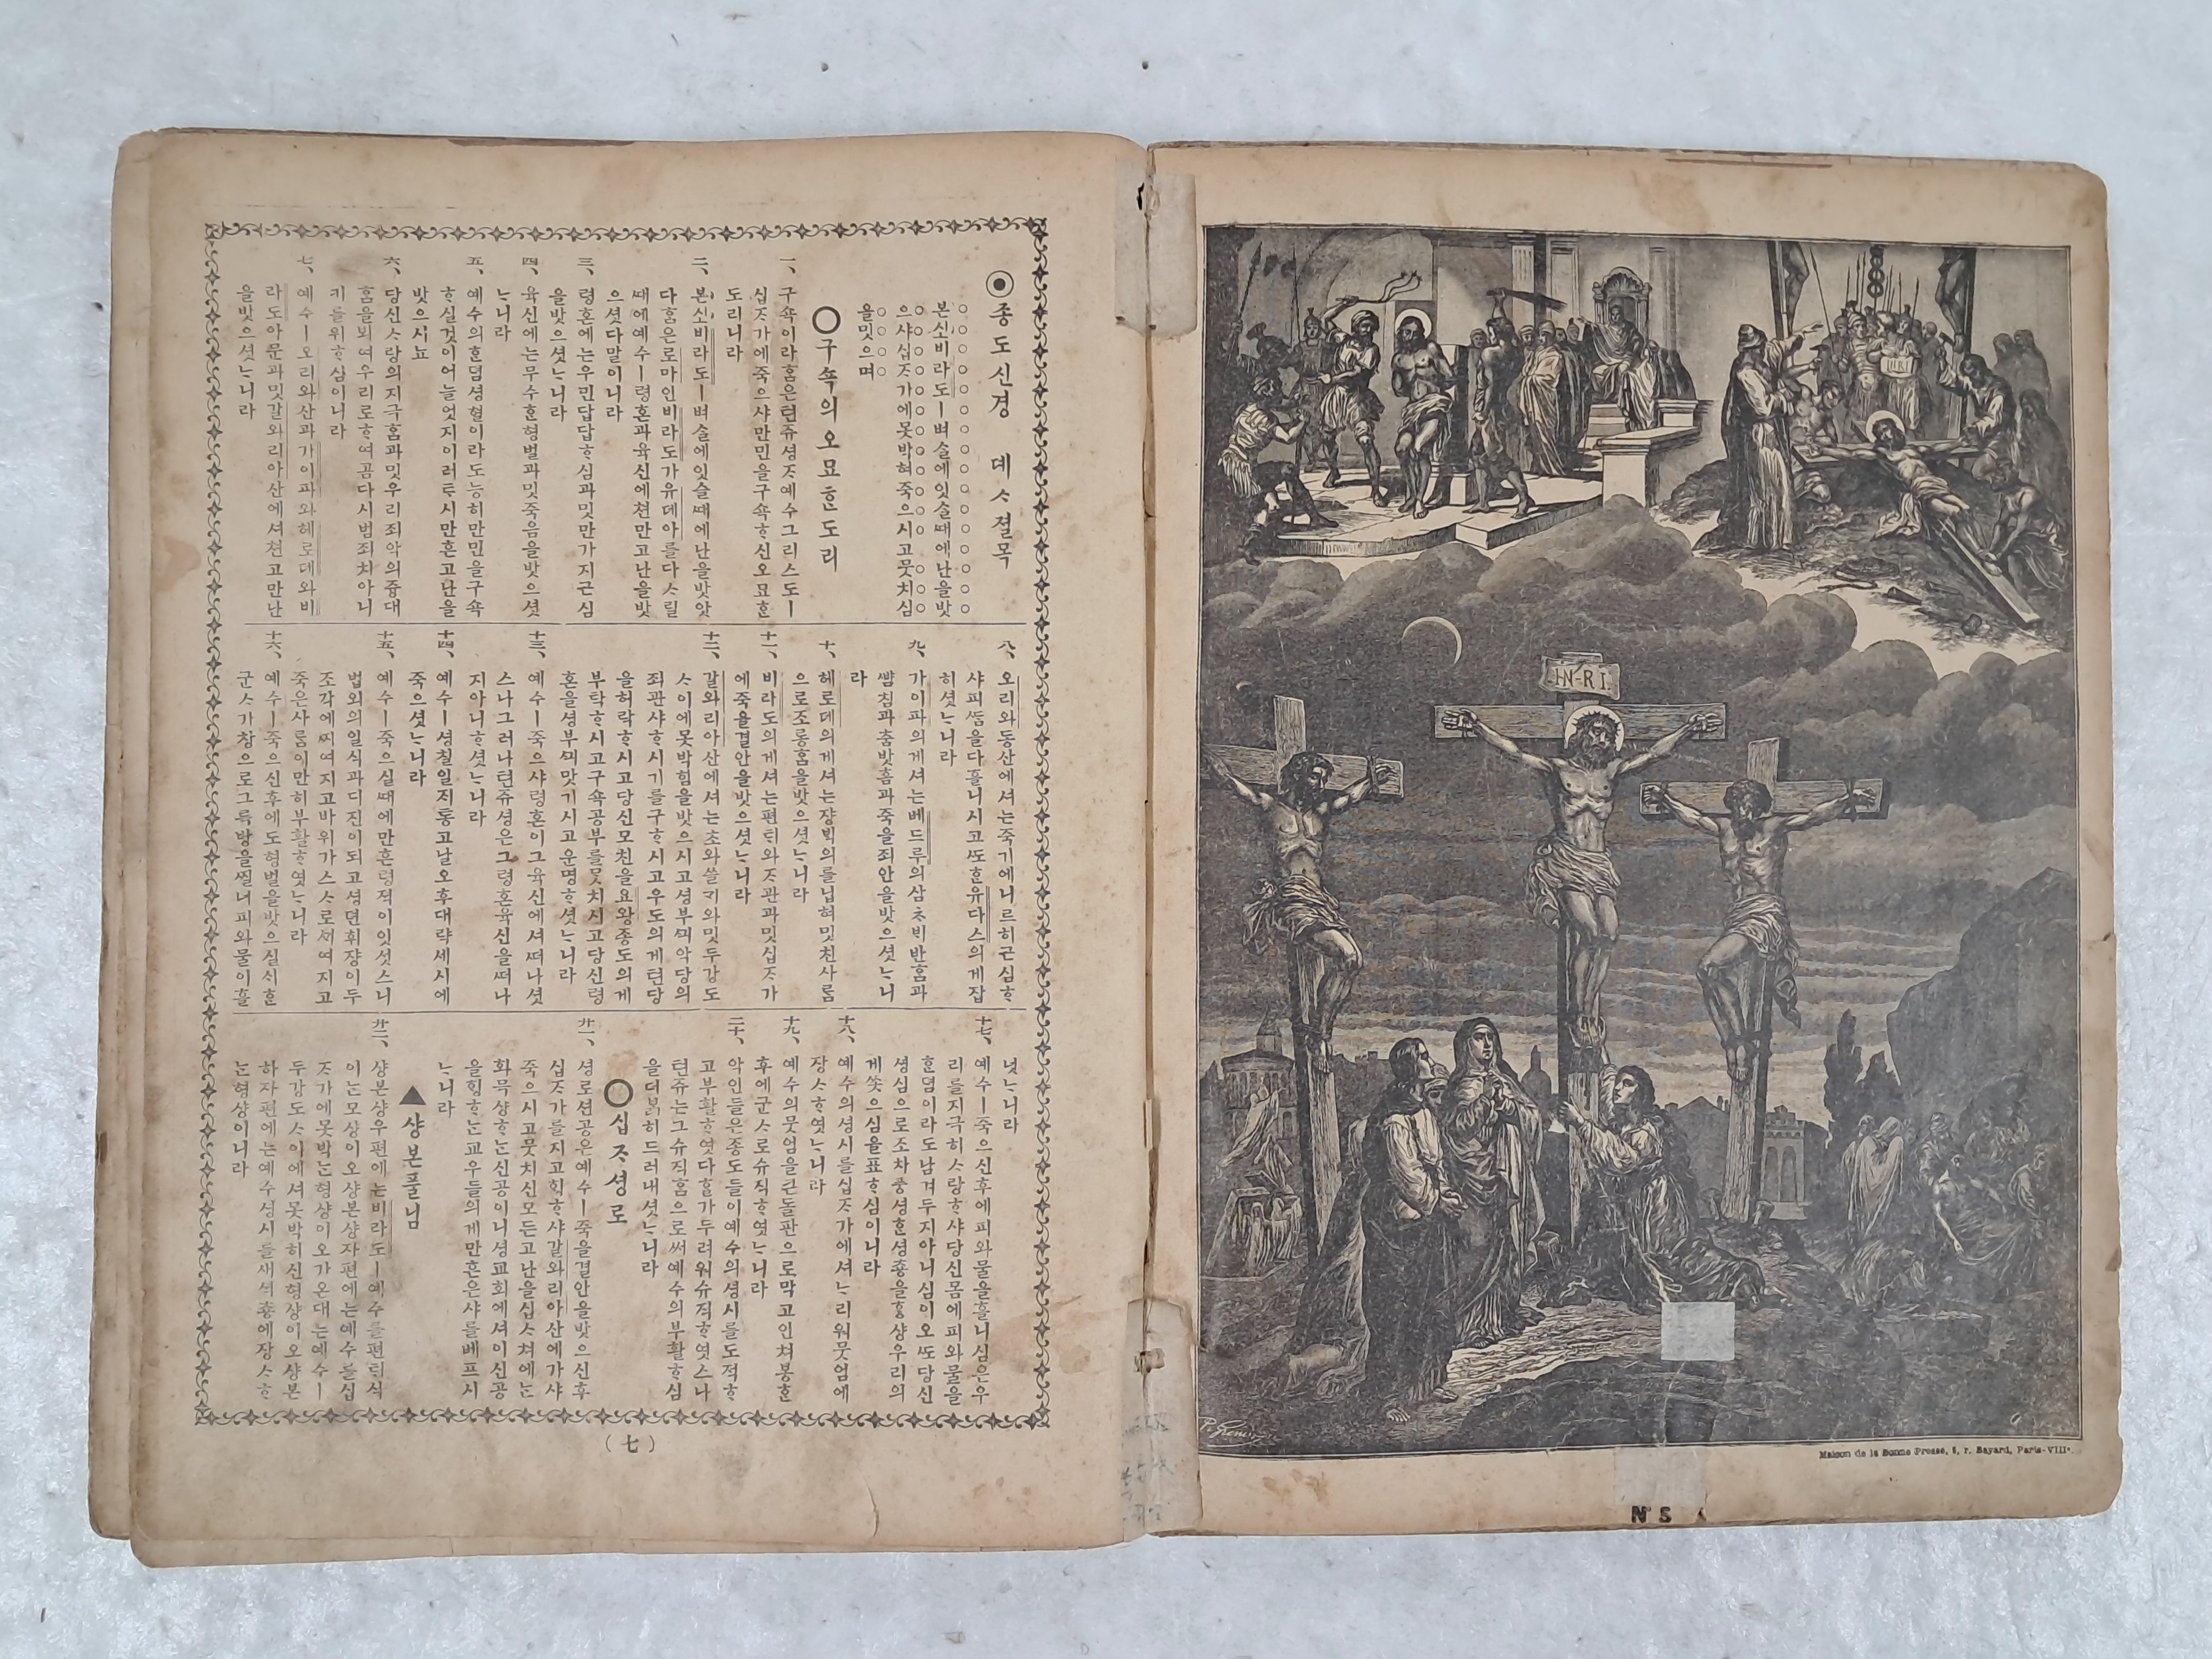 ◉종도신경 뎨ᄉ졀목
본시오비라도ㅣ벼슬에잇슬ᄯᅢ에난을밧
으샤십ᄌᆞ가에못박혀죽으시고뭇치심
을밋으며
○구쇽의오묘ᄒᆞᆫ도리
一、구쇽이라ᄒᆞᆷ은텬쥬셩ᄌᆞ예수그리스도ㅣ
십ᄌᆞ가에죽으샤만민을구쇽ᄒᆞ신오묘ᄒᆞᆫ
도리니라
二、본시오비라도ㅣ벼슬에잇슬ᄯᅢ에난을밧앗
다ᄒᆞᆷ은로마인비라도가유데아를다ᄉᆞ릴
ᄯᅢ에예수ㅣ령혼과육신에쳔만고난을밧
으셧다말이니라
三、령혼에는우민답답ᄒᆞ심과밋만가지근심
을밧으셧ᄂᆞ니라
四、육신에는무수ᄒᆞᆫ형벌과밋죽음을밧으셧
ᄂᆞ니라
五、예수의ᄒᆞᆫ덤셩혈이라도능히만민을구쇽
ᄒᆞ실것이어늘엇지이러ᄐᆞ시만흔고난을
밧으시뇨
六、당신ᄉᆞ랑의지극ᄒᆞᆷ과밋우리죄악의즁대
ᄒᆞᆷ을뵈여우리로ᄒᆞ여곰다시범죄치아니
키를위ᄒᆞ심이니라
七、예수ㅣ오리와산과가이파와헤로데와비
라도아문과밋갈와리아산에셔쳔고만난
을밧으셧ᄂᆞ니라
八、오리와동산에셔는죽기에니르히근심ᄒᆞ
샤피ᄯᆞᆷ을다흘니시고ᄯᅩᄒᆞᆫ유다스의게잡
히셧ᄂᆞ니라
九、가이파의게셔는베드루의삼ᄎᆞᄇᆡ반ᄒᆞᆷ과
ᄲᅣᆷ침과춤밧홈과죽을죄안을밧으셧ᄂᆞ니
라
十、헤로데의게셔는쟝ᄇᆡᆨ의를닙혀밋친사ᄅᆞᆷ
으로조롱ᄒᆞᆷ을밧으셧ᄂᆞ니라
十一、비라도의게셔는편ᄐᆡ와ᄌᆞ관과밋십ᄌᆞ가
에죽을결안을밧으셧ᄂᆞ니라
十二、갈와리아산에셔는초와쓸기와밋두강도
ᄉᆞ이에못박힘을밧으시고셩부ᄭᅴ악당의
죄관샤ᄒᆞ시기를구ᄒᆞ시고우도의게텬당
을허락ᄒᆞ시고당신모친을요왕종도의게
부탁ᄒᆞ시고구쇽공부를뭇치시고당신령
혼을셩부ᄭᅴ맛기시고운명ᄒᆞ셧ᄂᆞ니라
十三、예수ㅣ죽으샤령혼이그육신에셔ᄯᅥ나셧
스나그러나텬쥬셩은그령혼육신을ᄯᅥ나
지아니ᄒᆞ셧ᄂᆞ니라
十四、예수ㅣ셩칠일지동고날오후대략세시에
죽으셧ᄂᆞ니라
十五、예수ㅣ죽으실ᄯᅢ에만흔령젹이잇섯스니
법외의일식과디진이되고셩뎐휘쟝이두
조각에ᄶᅵ여지고바위가스스로ᄭᆡ여지고
죽은사ᄅᆞᆷ이만히부활ᄒᆞ엿ᄂᆞ니라
十六、예수ㅣ죽으신후에도형벌을밧으실시ᄒᆞᆫ
군ᄉᆞ가창으로그륵방을ᄶᅵᆯ너피와물이흘
넛ᄂᆞ니라
十七、예수ㅣ죽으신후에피와물을흘니심은우
리를지극히ᄉᆞ랑ᄒᆞ샤당신몸에피와물을
ᄒᆞᆫ덤이라도남겨두지아니심이오ᄯᅩ당신
셩심으로조차풍셩ᄒᆞᆫ셩춍을ᄒᆞᆼ샹우리의
게쏫으심을표ᄒᆞ심이니라
十八、예수의셩시를십ᄌᆞ가에셔ᄂᆞ리워뭇엄에
장ᄉᆞᄒᆞ엿ᄂᆞ니라
十九、예수의뭇엄을큰돌판으로막고인쳐봉ᄒᆞᆫ
후에군ᄉᆞ로슈직ᄒᆞ엿ᄂᆞ니라
二十、악인들은종도들이예수의셩시를도적ᄒᆞ
고부활ᄒᆞ엿다ᄒᆞᆯ가두려워슈직ᄒᆞ엿스나
텬쥬는그슈직ᄒᆞᆷ으로써예수의부활ᄒᆞ심
을더ᄇᆞᆰ히드러내셧ᄂᆞ니라
○십ᄌᆞ셩로
卄一、셩로션공은예수ㅣ죽을결안을밧으신후
십ᄌᆞ가를지고ᄒᆡᆼᄒᆞ샤갈와리아산에가샤
죽으시고뭇치신모든고난을십ᄉᆞ쳐에ᄂᆞᆫ
화묵샹ᄒᆞᄂᆞᆫ신공이니셩교회에셔이신공
을ᄒᆡᆼᄒᆞᄂᆞᆫ교우들의게만흔은샤를베프시
ᄂᆞ니라
▲샹본풀님
卄二、샹본샹우편에ᄂᆞᆫ비라도ㅣ예수를편ᄐᆡ식
이ᄂᆞᆫ모샹이오샹본샹자편에는예수를십
ᄌᆞ가에못박ᄂᆞᆫ형샹이오가온대는예수ㅣ
두강도ᄉᆞ이에셔못박히신형샹이오샹본
하자편에는예수셩시를새셕춍에장ᄉᆞᄒᆞ
ᄂᆞᆫ형샹이니라
(七)
IN-RI
Maison de la Bonne Presse, 5, r. Bayard, Paris-VIIIe.
Nº 5